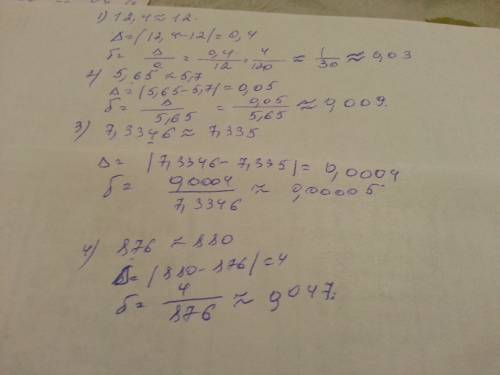 1) 12,4 ≈ 12.
Δ = |12,4-12| = 0,4
δ = Δ/a = 0,4/12 = 4/120 ≈ 1/30 ≈ 0,03
2) 5,65 ≈ 5,7
Δ = |5,65-5,7| = 0,05
δ = Δ/5,65 = 0,05/5,65 ≈ 0,009.
3) 7,3346 ≈ 7,335
Δ = |7,3346-7,335| = 0,0004
δ = 0,0004/7,3346 ≈ 0,00005
4) 876 ≈ 880
Δ = |880-876| = 4
δ = 4/876 ≈ 0,047.